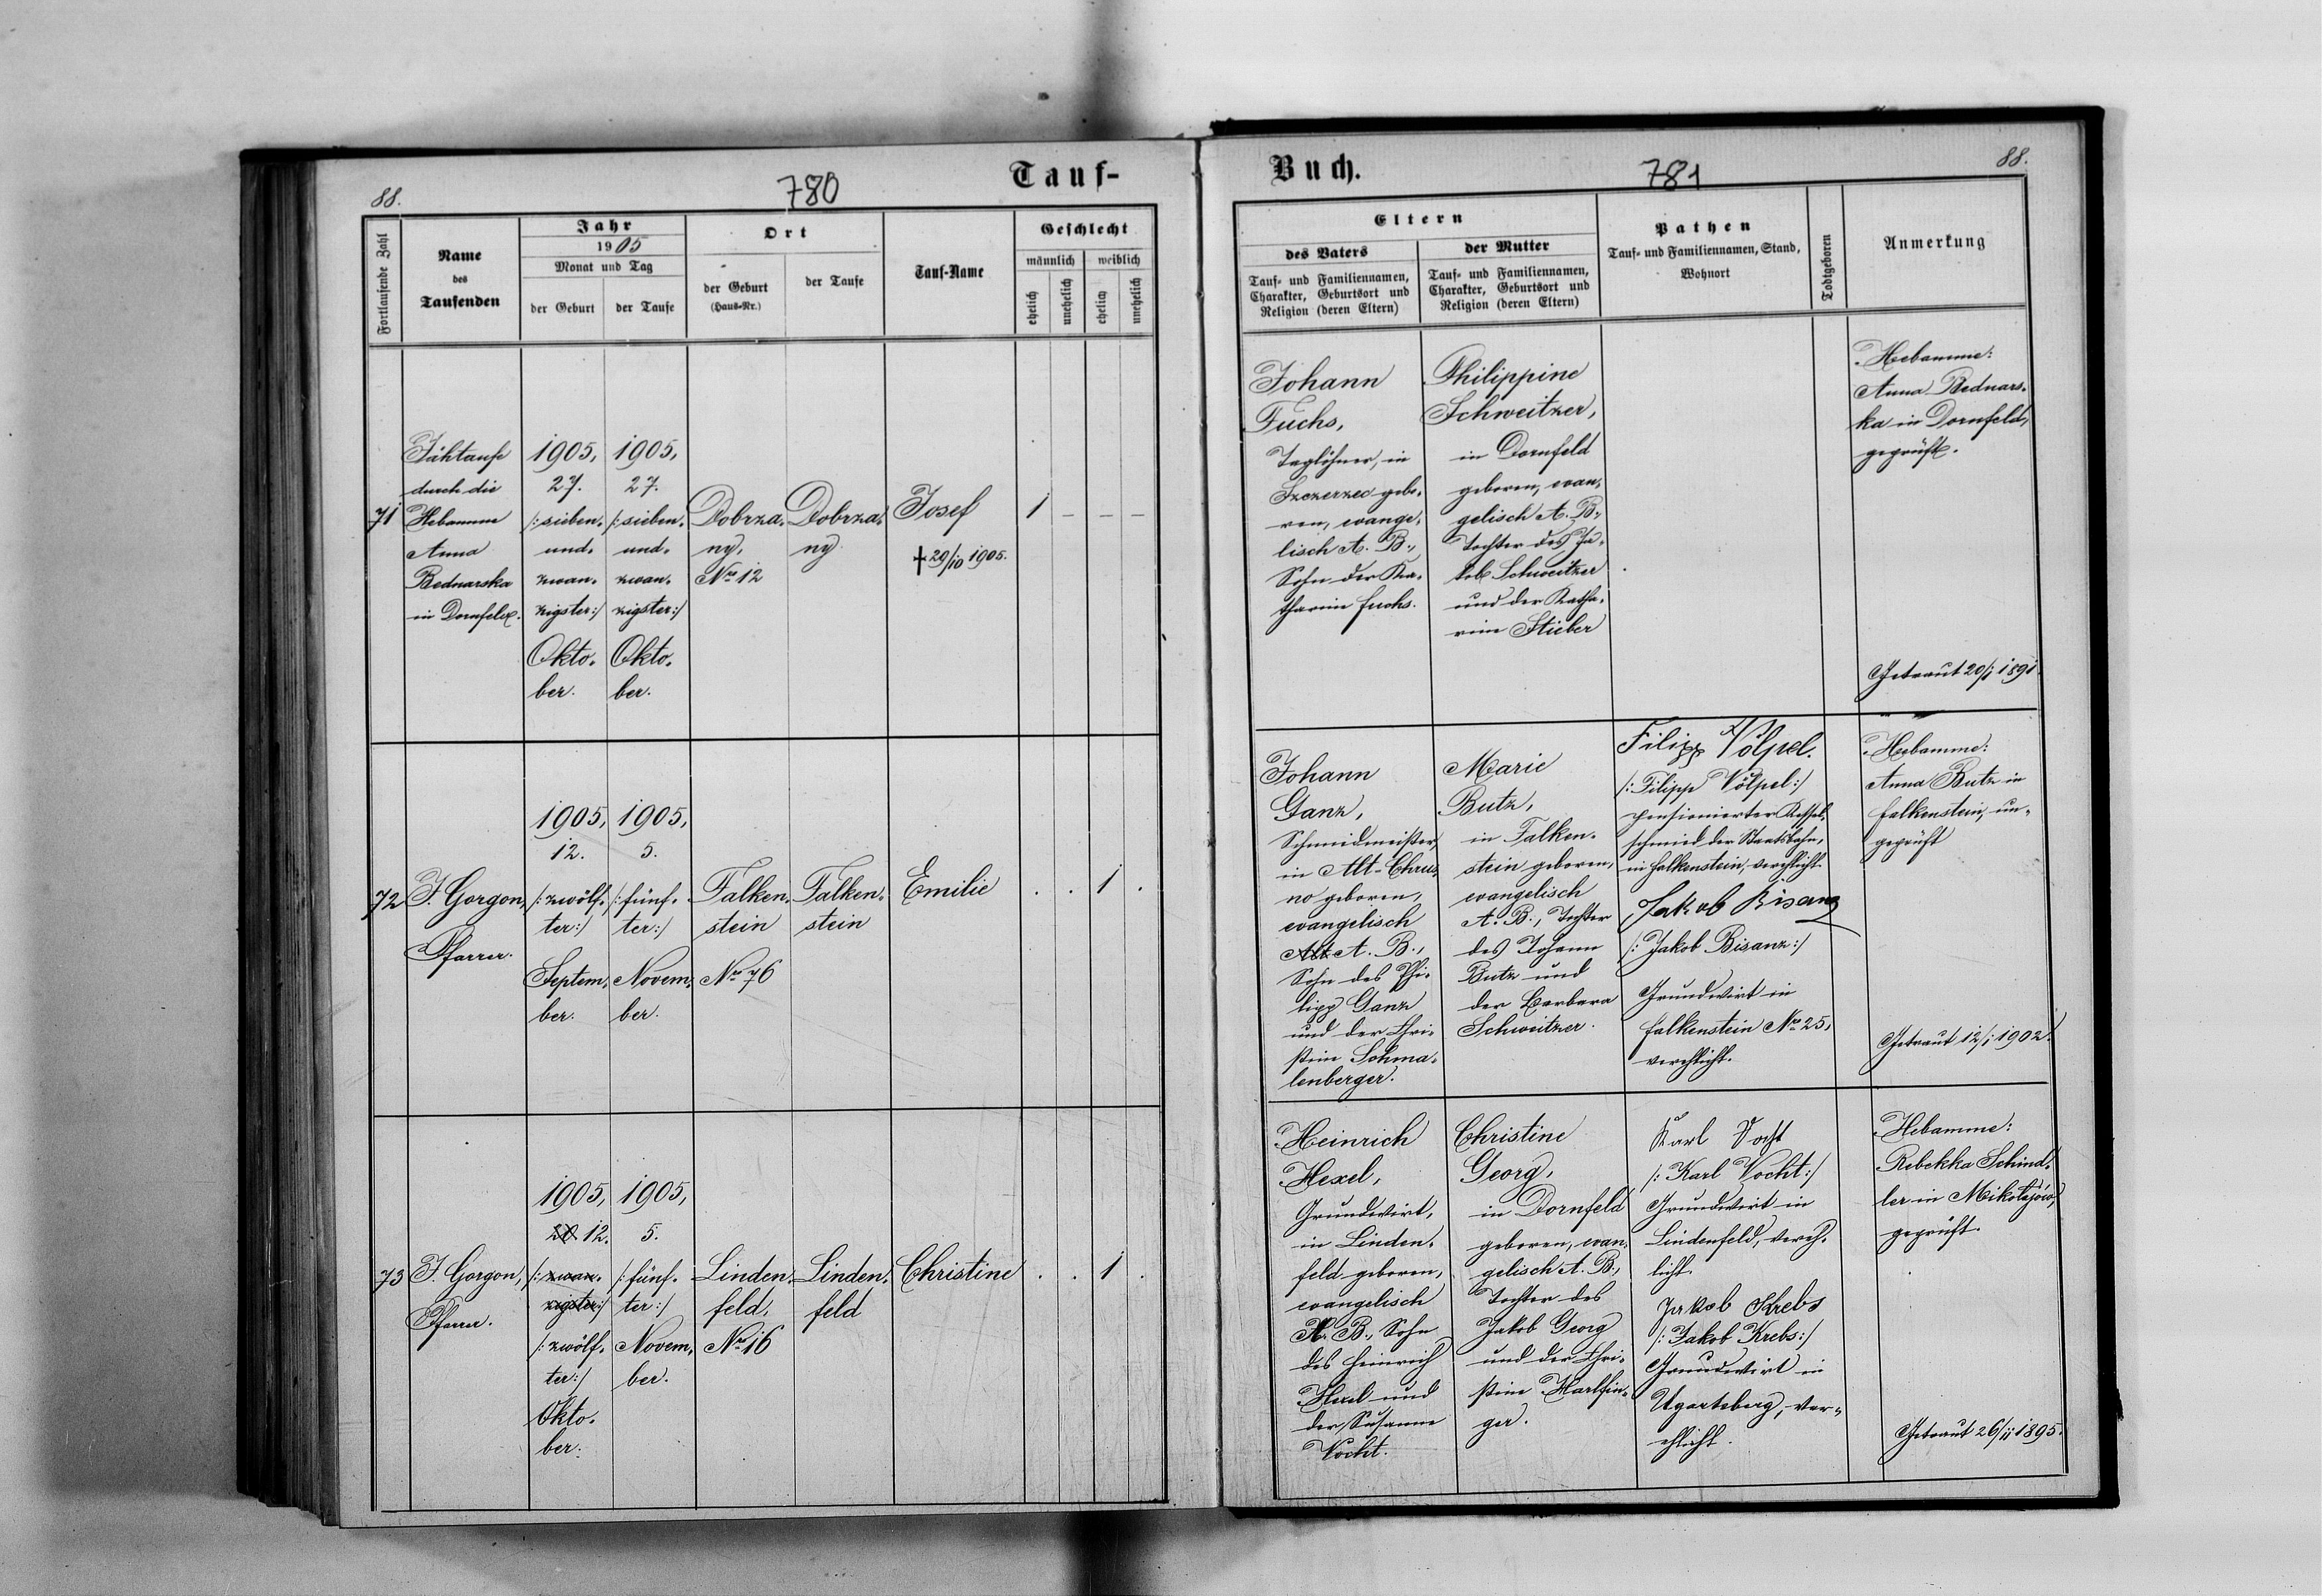 88.
780
Tauf-
Fortlaufende Zahl
Name
des
Taufenden
Jahr
1905
Monat und Tag
der Geburt
der Taufe
Ort
der Geburt
(Haus-Nr.)
der Taufe
Tauf-Name
Geschlecht
männlich
weiblich
ehelich
unehelich
ehelich
unehelich
71
Jähtaufe
durch die
Hebamme
Anna
Bednarska
in Dornfeld.
1905,
27.
/:sieben-
und-
zwan-
zigster:/
Okto-
ber.
1905,
27.
/:sieben-
und-
zwan-
zigster:/
Okto-
ber.
Dobrza-
ny,
No 12
Dobrza-
ny.
Josef
† 29/10 1905.
1 – – –
72
J. Gorgon,
Pfarrer.
1905,
12.
/:zwölf-
ter:/
Septem-
ber.
1905,
5.
/:fünf-
ter:/
Novem-
ber.
Falken-
stein
No 76
Falken-
stein
Emilie
. . 1 .
73
J. Gorgon,
Pfarrer.
1905,
20 12.
/:zwan-
zigster:/
/:zwölf-
ter:/
Okto-
ber.
1905,
5.
/:fünf-
ter:/
Novem-
ber.
Linden-
feld,
No 16
Linden-
feld
Christine
. . 1 .
Buch.
781
88.
Eltern
des Vaters
Tauf- und Familiennamen,
Charakter, Geburtsort und
Religion (deren Eltern)
der Mutter
Tauf- und Familiennamen,
Charakter, Geburtsort und
Religion (deren Eltern)
Pathen
Tauf- und Familiennamen, Stand,
Wohnort
Todtgeboren
Anmerkung
Johann
Fuchs,
Taglöhner, in
Szczerzec gebo-
ren, evange-
lisch A. B.,
Sohn der Ka-
tharine Fuchs.
Philippine
Schweitzer,
in Dornfeld
geboren, evan-
gelisch A. B.,
Tochter des Ja-
kob Schweitzer
und der Katha-
rine Stieber
Hebamme:
Anna Bednars-
ka in Dornfeld,
geprüft.
Getraut 20/1 1891.
Johann
Ganz,
Schmidmeister,
in Alt-Chrus-
no geboren,
evangelisch
Alt A. B.,
Sohn des Phi-
lipp Ganz
und der Chri-
stine Schma-
lenberger.
Marie
Butz,
in Falken-
stein geboren,
evangelisch
A. B., Tochter
des Johann
Butz und
der Barbara
Schweitzer.
Filipp Völpel.
/: Filipp Völpel:/
pensionierter Kessel-
schmied der Staatsbahn,
in Falkenstein, verehlicht.
Jakob Bisanz
/: Jakob Bisanz:/
Grundwirt in
Falkenstein No 25,
verehlicht.
Hebamme:
Anna Butz in
Falkenstein, un-
geprüft
Getraut 12/1 1902.
Heinrich
Hexel,
Grundwirt,
in Linden-
feld geboren,
evangelisch
A. B., Sohn
des Heinrich
Hexel und
der Susanne
Vocht.
Christine
Georg,
in Dornfeld
geboren, evan-
gelisch A. B.,
Tochter des
Jakob Georg
und der Chri-
stine Harlfin-
ger.
Karl Vocht
/: Karl Vocht:/
Grundwirt in
Lindenfeld, vereh-
licht.
Jakob Krebs
/: Jakob Krebs:/
Grundwirt in
Ugartsberg, ver-
ehlicht.
Hebamme:
Rebekka Schind-
ler in Mikołajów,
geprüft.
Getraut 26/11 1895.